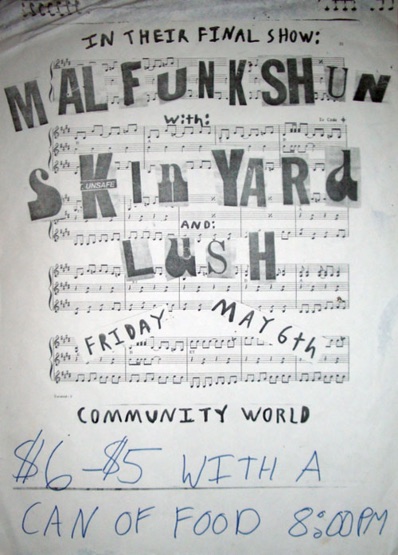 IN THEIR FINAL SHOW:
MALFUNKSHUN
with:
To Coda
SKIN YARd
UNSAFE
AND:
LUSH
FRIDAY MAY 6th
COMMUNITY WORLD
$6-$5 WITH A
CAN OF FOOD 8:00PM